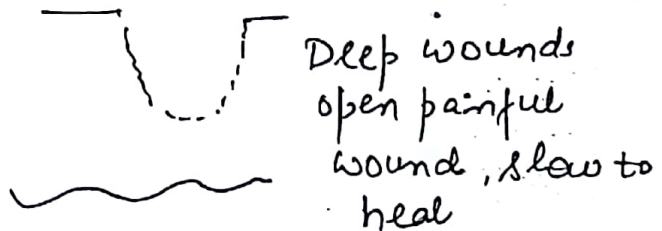 Deep wounds
open painful
wound, slow to
heal